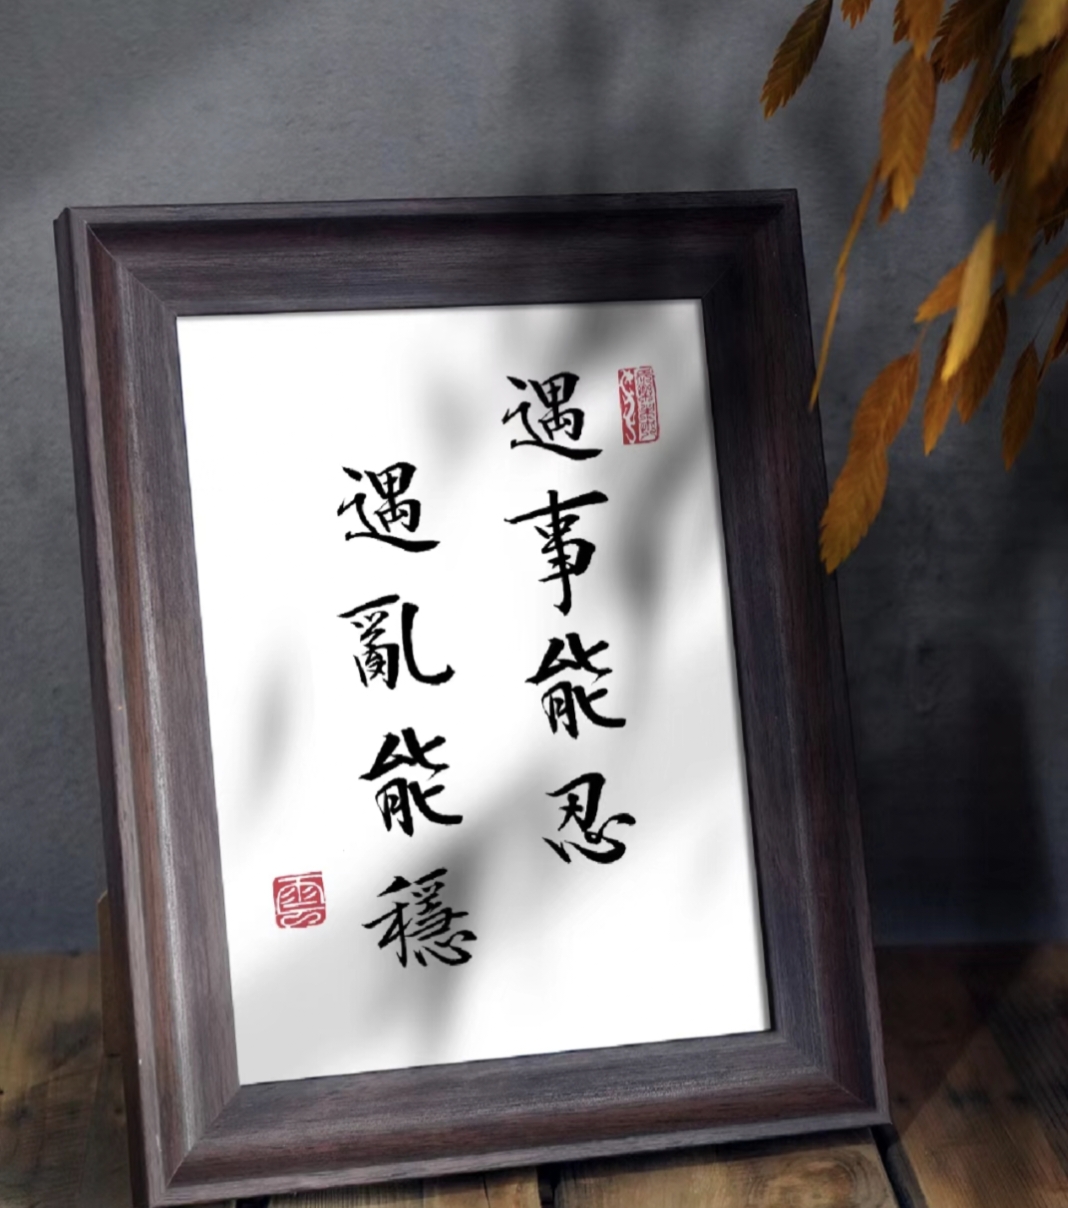 遇事能忍
遇亂能穩